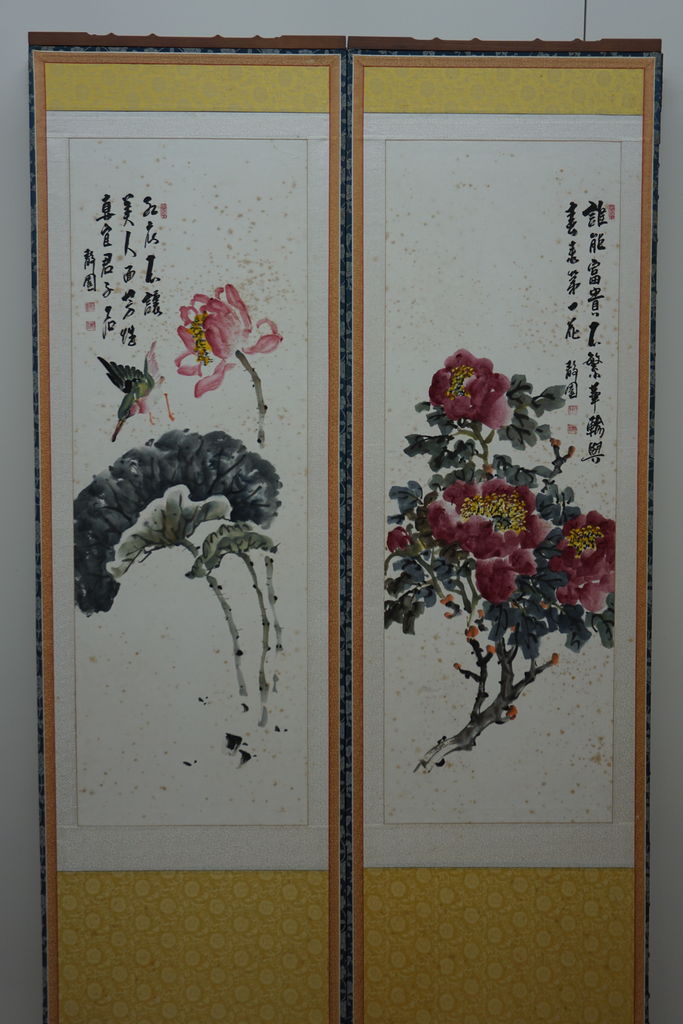 誰能富貴不繁華輸與
春來第一花
靜園
紅衣不讓
美人面芳
真宜君子
靜園